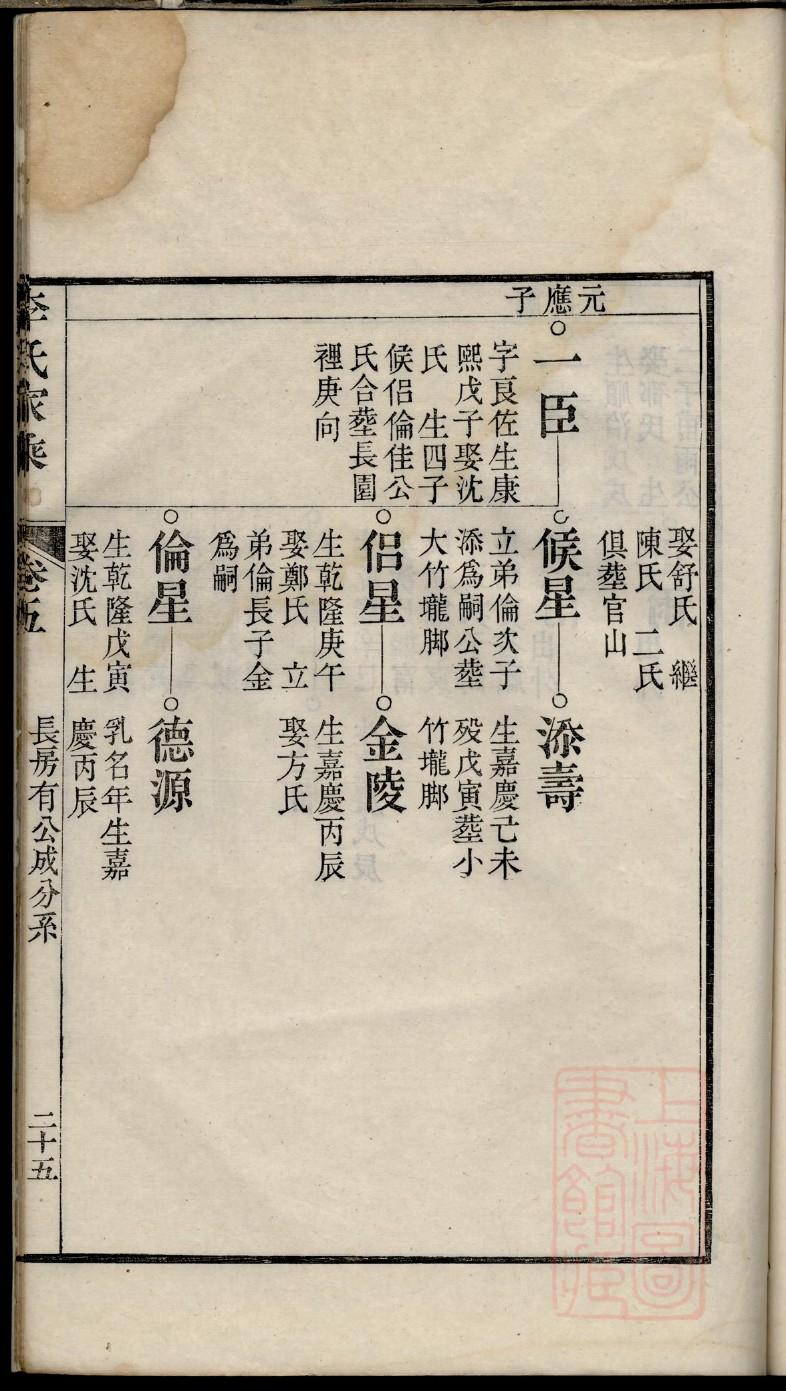 元應子
一臣
字良佐生康
熙戊子娶沈
氏　生四子
候侶倫佳公
氏合塟長園
裡庚向
娶舒氏　繼
陳氏　二氏
俱塟官山
候星
立弟倫次子
添爲嗣公塟
大竹壠脚
添壽
生嘉慶己未
殁戊寅塟小
竹壠脚
侣星
生乾隆庚午
娶鄭氏　立
弟倫長子金
爲嗣
金陵
生嘉慶丙辰
娶方氏
倫星
生乾隆戊寅
娶沈氏　生
德源
乳名年生嘉
慶丙辰
李氏家乘
卷五
長房有公成分系
二十五
上海圖
書館藏